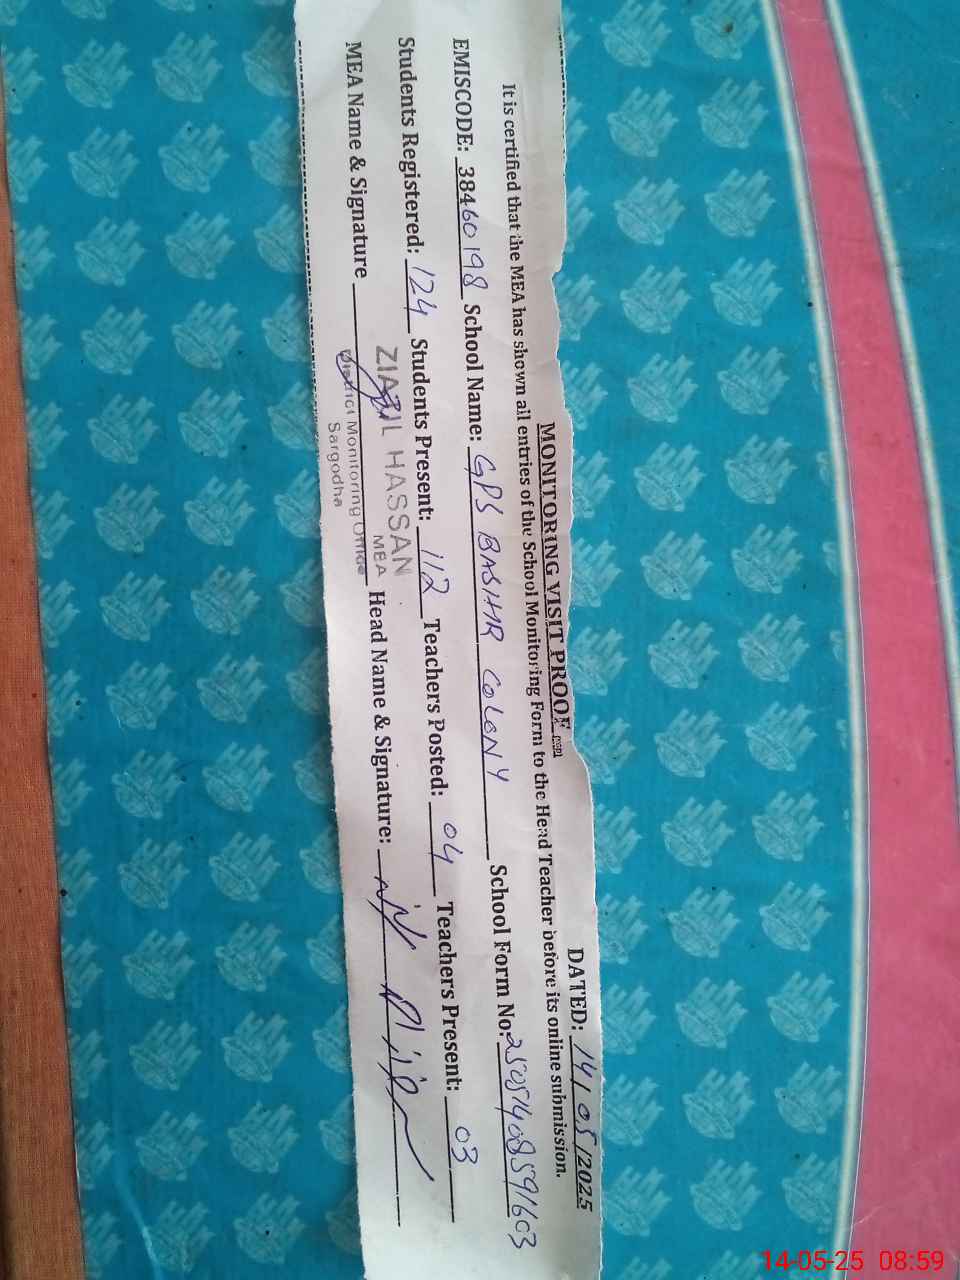 MONITORING VISIT PROOF
DATED: 14/05/2025
It is certified that the MEA has shown all entries of the School Monitoring Form to the Head Teacher before its online submission.
EMISCODE: 38460198 School Name: GPS BASHIR COLONY School Form No: 25051408591603
Students Registered: 124 Students Present: 112 Teachers Posted: 04 Teachers Present: 03
ZIA UL HASSAN
MEA
MEA Name & Signature Head Name & Signature:
District Monitoring Office
Sargodha
14-05-25 08:59